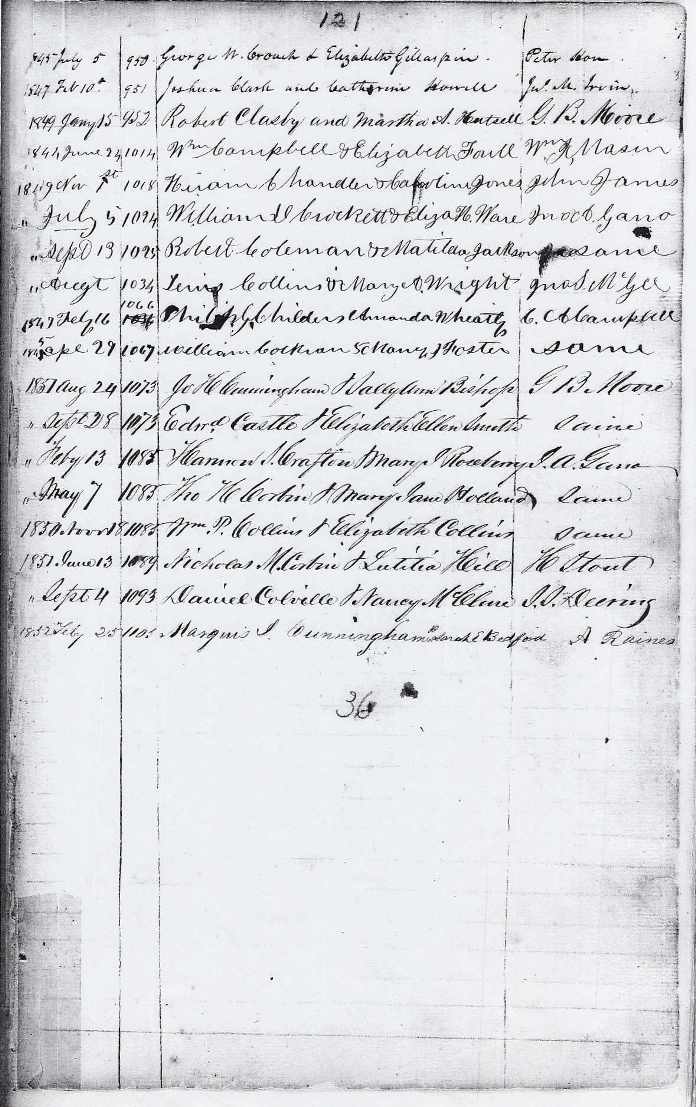 121
1845 July 5 950 George W. Crouch & Elizabeth Gillaspin Peter Hon
1847 Feb 10th 951 Joshua Clark and Catherine Howell Jas. M. Irvin
1849 Jany 15 952 Robert Clasby and Martha A. Hutsell G. B. Moore
1844 June 24 1014 Wm Campbell & Elizabeth Wm Mason
1849 Nov 1st 1018 Hiram Chandler & Caroline Jones John James
" July 5 1024 William Crockett & Eliza H. Ware Jno A. Gano
" Sept 13 1025 Robert Coleman & Matilda Jackson same
" Augt 1034 Lewis Collins & Mary A Wright Jno S. McGee
1847 Feby 16 1066 Childers & Amanda Wheatly C. A Campbell
Apl 27 1067 William Cockran & Mary J Foster same
1851 Aug 24 1073 Jo H Cunningham & Sally Ann Bishop G B Moore
" Sept 28 1073 Edwd Castle & Elizabeth Ellen Smith same
" Feby 13 1085 Harmon S. Crafton & Mary J Roseberry J. A. Gano
" May 7 1085 Tho H Corbin & Mary Jane Holland same
1850 Novr 18 1085 Wm P. Collins & Elizabeth Collins same
1851 June 13 1089 Nicholas M. Corbin & Lutitia Hill H Stout
" Sept 4 1093 Daniel Colville & Nancy McClure J. J. Deering
1852 Feby 25 1105 Marquis J. Cunningham & Sarah E Bedford A Raines
36